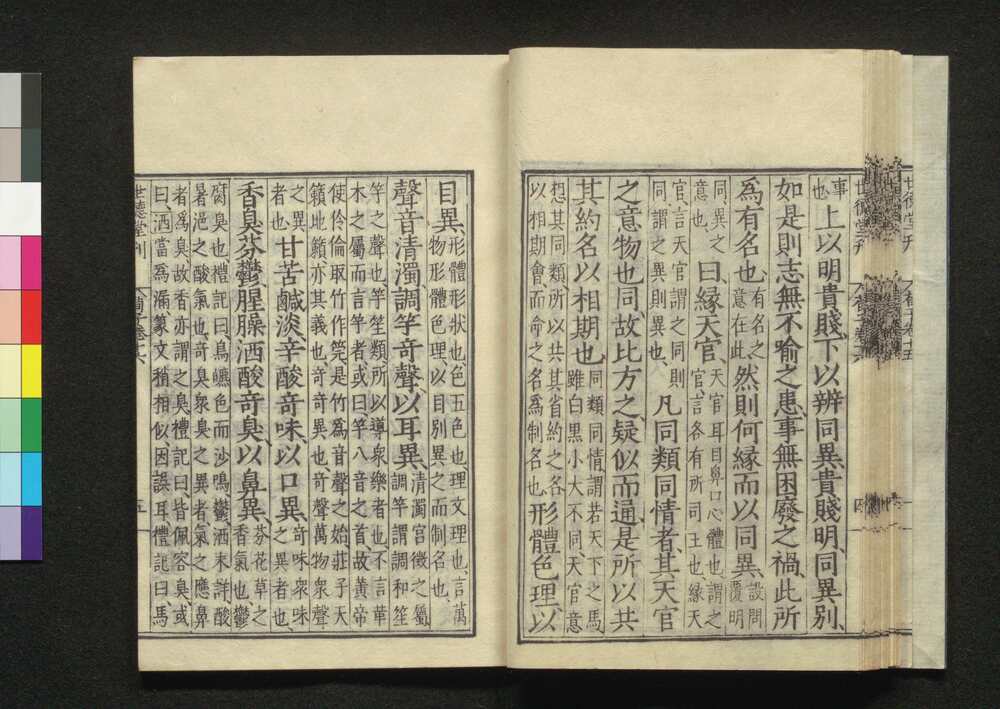 世德堂刊
四
事也上以明貴賤、下以辨同異、貴賤明、同異別、
如是則志無不喻之患、事無困廢之禍、此所
爲有名也、有名之意在此、然則何縁而以同異、設問覆明
同異之意也、曰、縁天官、天官耳目鼻口心體也、謂之官、言各有所司主也、縁天
官、言天官謂之同則同、謂之異則異也、凡同類同情者、其天官
之意物也同、故比方之疑似而通、是所以共
其約名以相期也、同類同情、謂若天下之馬、雖白黒小大不同、天官意
想其同類、所以共其省約之名、以相期會、而命之名爲制名也、形體色理、以
目異、形體形狀也、色五色也、理文理也、言萬物形體色理、以目別異之而制名也、
聲音清濁、調竽奇聲、以耳異、清濁宮徵之屬、調竽謂調和笙
竽之聲也、竽笙類、所以導衆樂者也、不言革木之屬而言竽者、或曰、竽八音之首、故黃帝
使伶倫取竹作筦、是竹爲音聲之始、莊子天籟地籟亦其義也、奇奇異也、奇聲萬物衆聲
之異者也、甘苦鹹淡辛酸奇味、以口異、奇味衆味之異者也、
香臭芬鬱腥臊洒酸奇臭、以鼻異、芬花草之香氣也、鬱
腐臭也、禮記曰、鳥皫色而沙鳴鬱、洒未詳、酸暑浥之酸氣也、奇臭衆臭之異者、氣之應鼻
者爲臭、故香亦謂之臭、禮記曰、皆佩容臭、或曰、洒當爲漏、篆文稍相似、因誤耳、禮記曰馬
世德堂刊
五